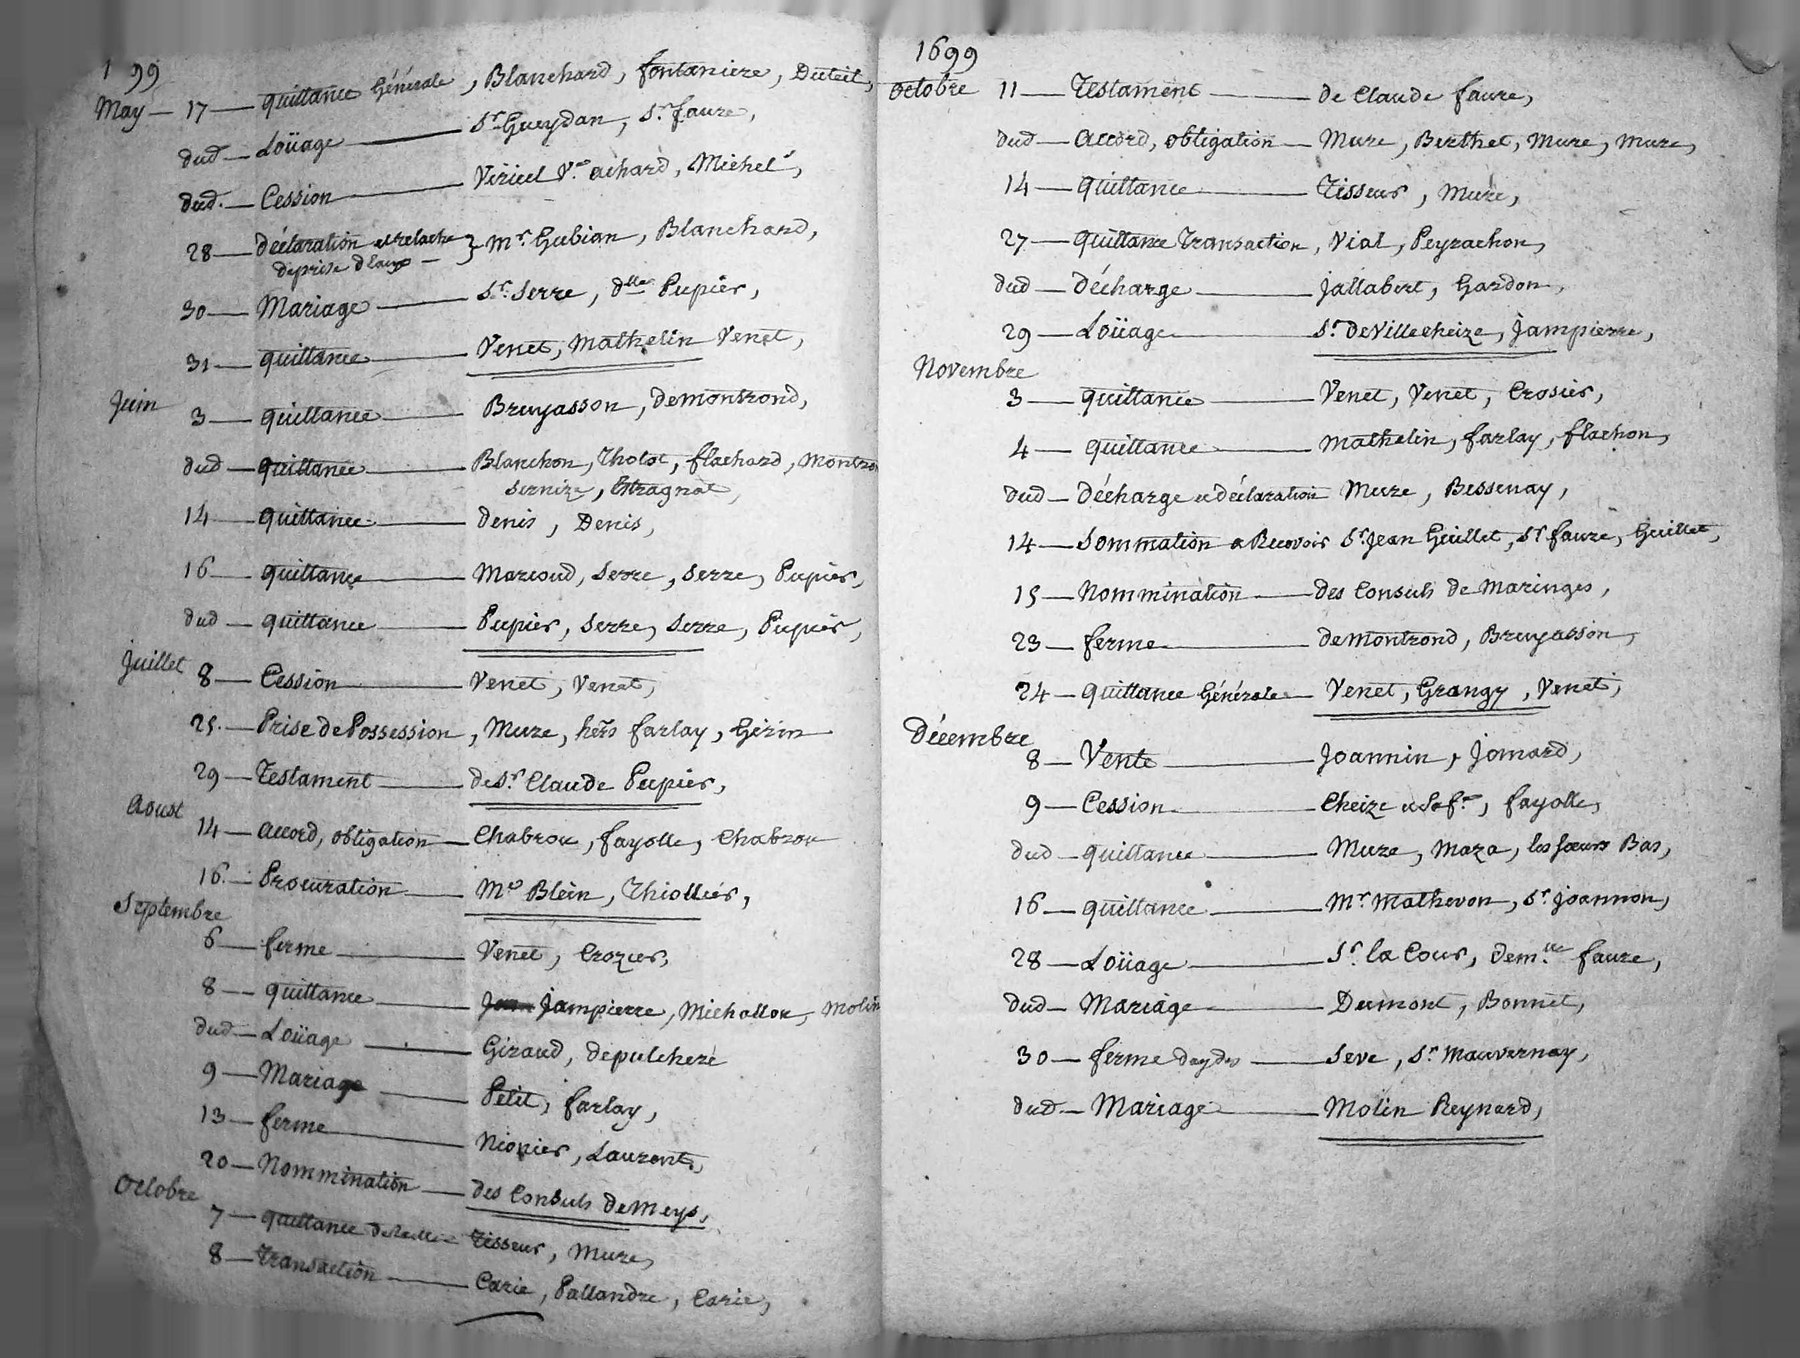 1 99
May — 17 — quittance Générale, Blanchard, fontaniere, Duteil,
dud — Loüage — Sr. Gueydan, Sr. faure,
dud. — Cession — Viricel Ve. achard, Michel,
28 — déclaration et relache } Mr. Gubian, Blanchard,
deprise
30 — Mariage — Sr. Serre, dlle Pupier,
31 — quittance — Venet, Mathelin Venet,
Juin
3 — quittance — Bruyasson, demontrond,
dud — quittance — Blanchon, Tholot, flachard, Montro
Sernize, Estragnat,
14 — quittance — Denis, Denis,
16 — quittance — Marcoud, Serre, Serre, Pupier,
dud — quittance — Pupier, Serre, Serre, Pupier,
Juillet
8 — Cession — Venet, Venet,
25. — Prise de Possession, Mure, hers farlay, Gérin
29 — Testament — de Sr. Claude Pupier,
Aoust
14 — accord, obligation — Chabrou, fayolle, Chabrou
16. — Procuration — Me Blein, Thiollier,
Septembre
6 — ferme — Venet, Crozier,
8 — quittance — Jampierre, Michallon, Molin
dud — Loüage — Giraud, depulchere
9 — Mariage — Petit, farlay,
13 — ferme — Nionier, Laurent,
20 — Nommination — des Consuls de Meys,
Octobre
7 — quittance Tisseur, Mure,
8 — Transaction — Carie, Pallandre, Carie,
1699
Octobre 11 — Testament — de Claude faure,
dud — accord, obligation — Mure, Berthet, Mure, Mure,
14 — quittance — Tisseur, Mure,
27 — quittance Transaction, Vial, Peyrachon,
dud — Décharge — Jallabert, Gardon,
29 — Loüage — Sr. deVillecheize, Jampierre,
Novembre
3 — quittance — Venet, Venet, Crosier,
4 — quittance — Mathelin, farlay, flachon,
dud — Décharge et déclaration Mure, Bessenay,
14 — Sommation a Recevoir Sr. Jean Guillet, Sr. faure, Guillet,
15 — Nommination — des Consuls de Maringes,
23 — ferme — demontrond, Bruyasson,
24 — quittance Générale — Venet, Grangy, Venet,
Décembre
8 — Vente — Joannin, Jomard,
9 — Cession — Cheize et Safe., fayolle,
dud — quittance — Mure, Maza, les sœurs Bas,
16 — quittance — Mr. Mathevon, Sr. Joannon,
28 — Loüage — Sr. la Cour, demlle. faure,
dud — Mariage — Dumont, Bonnet,
30 — ferme — Seve, Sr. Mauvernay,
dud — Mariage — Molin Reynard,